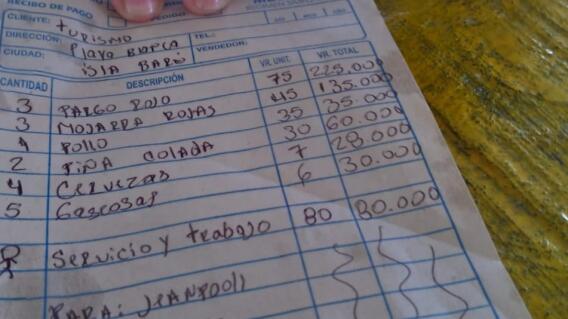 RECIBO DE PAGO
CLIENTE: TURISMO
DIRECCIÓN: Playa BLANCA TEL.:
CIUDAD: ISLA BARU VENDEDOR:
CANTIDAD DESCRIPCIÓN VR. UNIT. VR. TOTAL
3 PARGO ROJO 75 225.000
3 MOJARRA ROJAS 45 135.000
1 POLLO 35 35.000
2 PIÑA COLADA 30 60.000
4 CERVEZAS 7 28.000
5 Gaseosas 6 30.000
Servicio y trabajo 80 80.000
PARA: